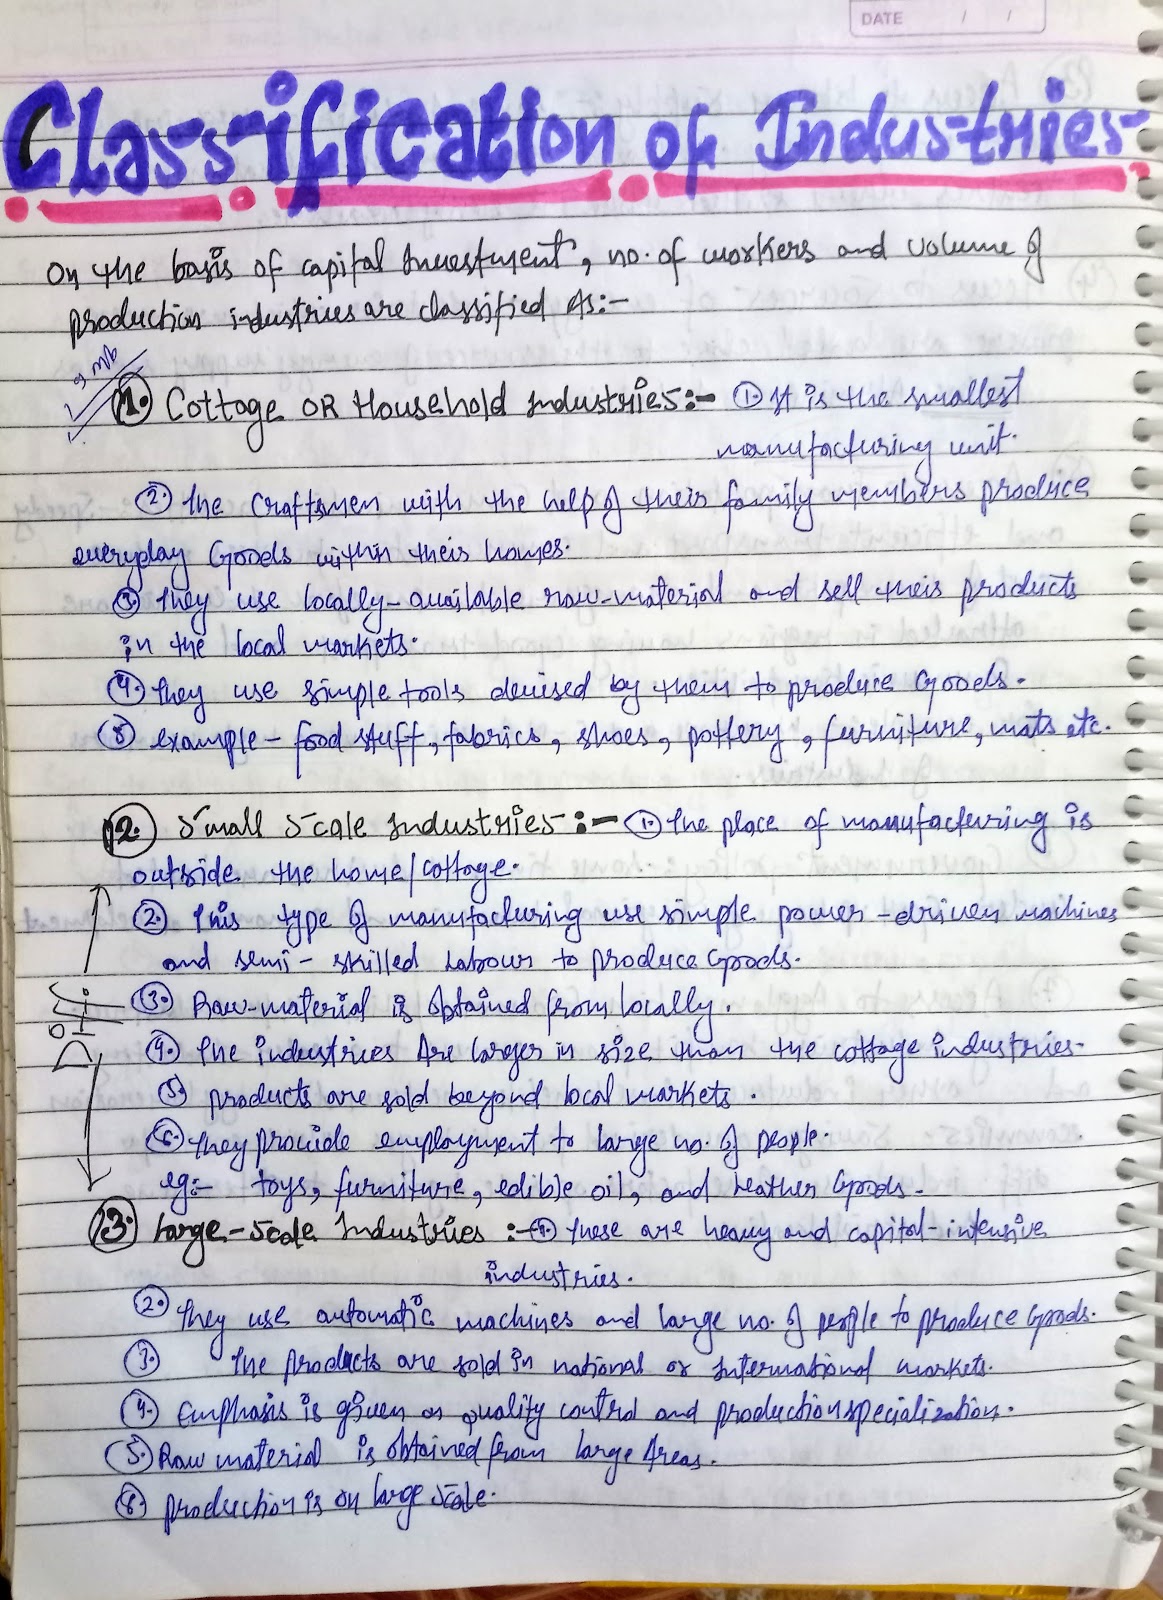 DATE / /
Classification of Industries
On the basis of capital Investment, no. of workers and volume of
production industries are classified As:-
1. Cottage OR Household industries:- 1. It is the smallest
manufacturing unit.
2. The craftsmen with the help of their family members produce
everyday Goods within their homes.
3. They use locally-available raw-material and sell their products
in the local markets.
4. They use simple tools devised by them to produce Goods.
5. example - food stuff, fabrics, shoes, pottery, furniture, mats etc.
2. Small Scale Industries:- 1. The place of manufacturing is
outside the home/cottage.
2. This type of manufacturing use simple power-driven machines
and semi-skilled Labour to produce Goods.
3. Raw-material is obtained from locally.
4. The industries Are larger in size than the cottage industries.
5. products are sold beyond local markets.
6. They provide employment to large no. of people.
eg:- toys, furniture, edible oil, and Leather Goods.
3. Large-Scale Industries:- 1. These are heavy and capital-intensive
industries.
2. They use automatic machines and large no. of people to produce Goods.
3. The products are sold in national or International markets.
4. Emphasis is given on quality control and production specialization.
5. Raw material is obtained from large Areas.
6. production is on large scale.